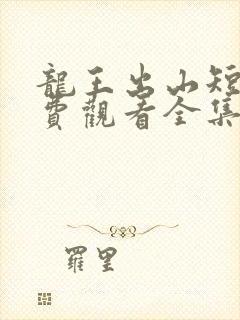 龍王出山短
費觀看全集
羅里